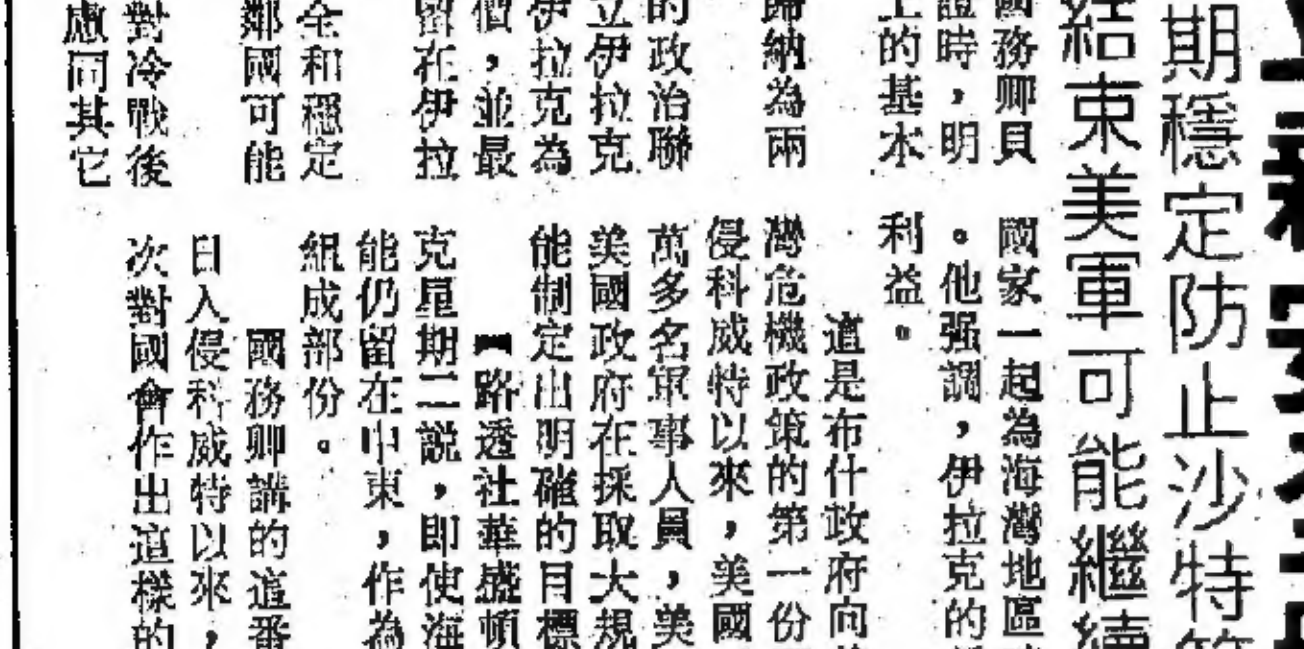 期穩定防止沙特等
結束美軍可能繼續
國務卿貝
證時，明
上的基本
歸納為兩
的政治聯
立伊拉克
伊拉克為
價，並最
留在伊拉
全和穩定
鄰國可能
對冷戰後
慮而其它
國家一起為海灣地區
。他强調，伊拉克的
利益。
這是布什政府向
灣危機政策的第一份
侵科威特以來，美國
萬多名軍事人員，美
美國政府在採取大規
能制定出明確的目標
【路透社華盛頓
克星期二説，即使海
能仍留在中東，作為
組成部份。
國務卿講的這番
日入侵科威特以來，
次對國會作出這樣的